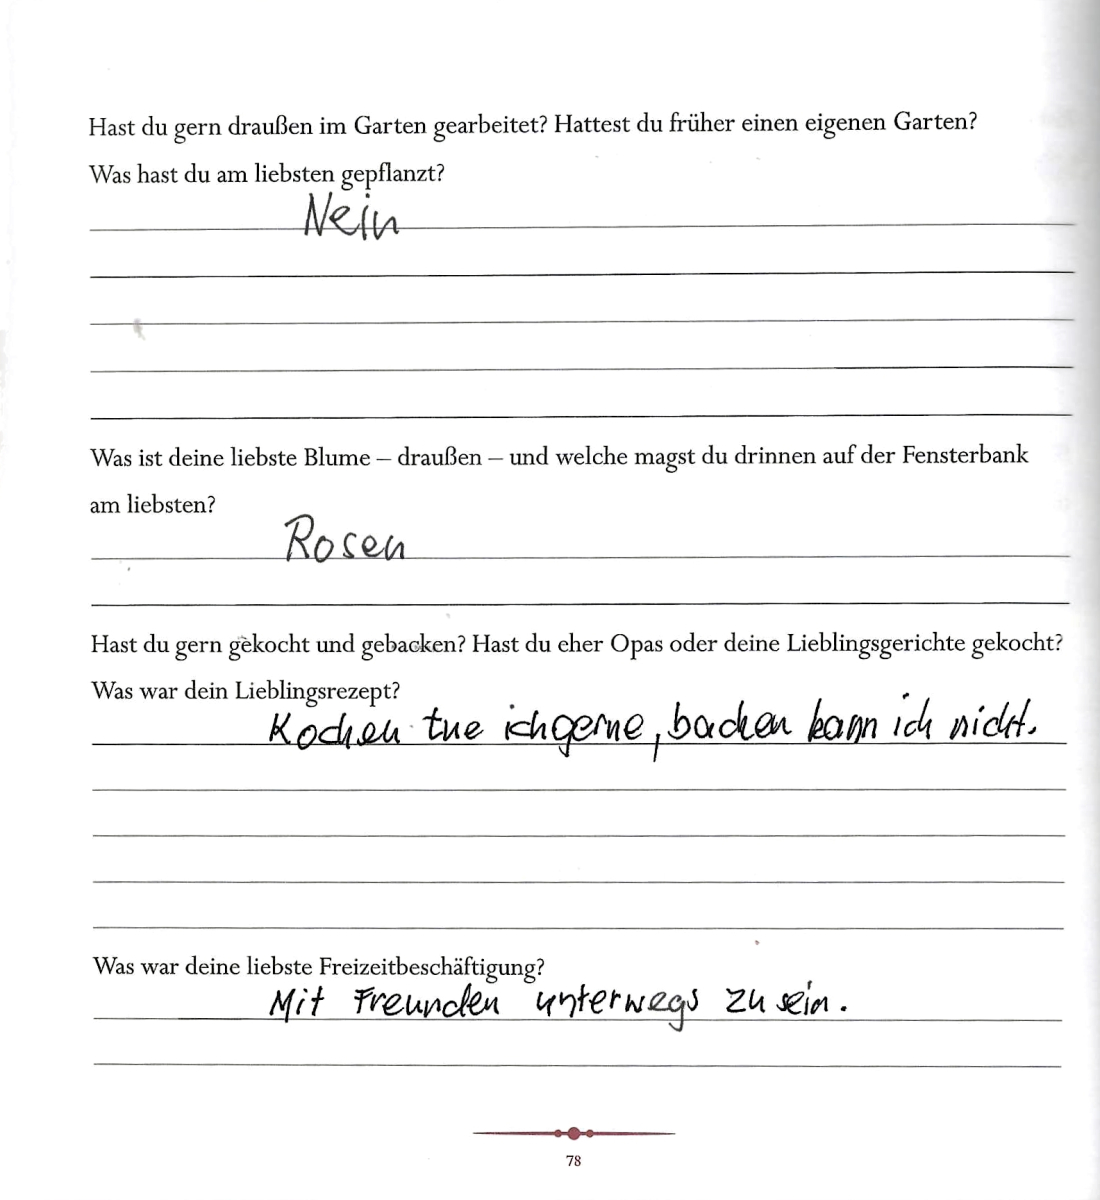 Hast du gern draußen im Garten gearbeitet? Hattest du früher einen eigenen Garten?
Was hast du am liebsten gepflanzt?
Nein
Was ist deine liebste Blume – draußen – und welche magst du drinnen auf der Fensterbank
am liebsten?
Rosen
Hast du gern gekocht und gebacken? Hast du eher Opas oder deine Lieblingsgerichte gekocht?
Was war dein Lieblingsrezept?
Kochen tue ich gerne, backen kann ich nicht.
Was war deine liebste Freizeitbeschäftigung?
Mit Freunden unterwegs zu sein.
78